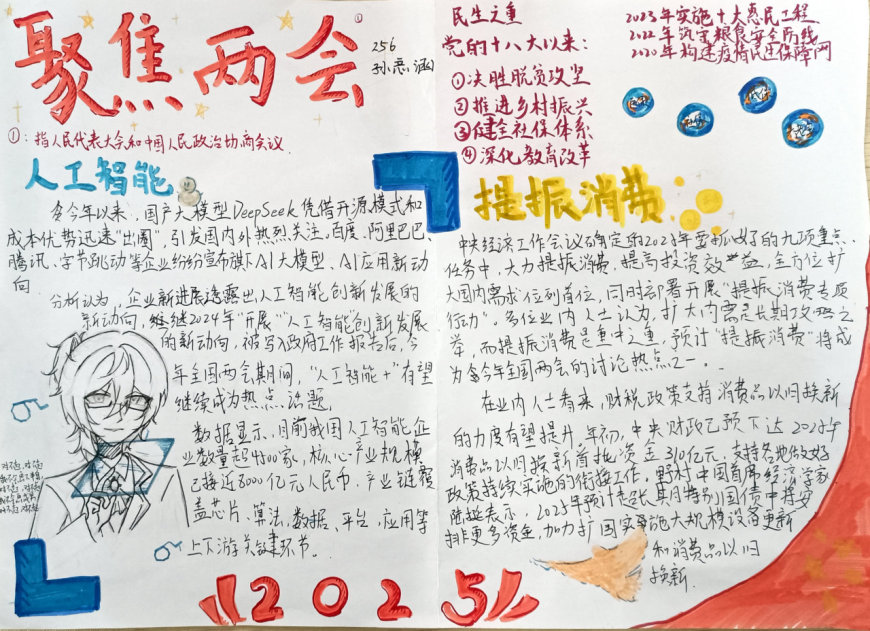 聚焦两会①
256
孙恶涵
①：指人民代表大会和中国人民政治协商会议
人工智能
今年以来，国产大模型DeepSeek凭借开源模式和
成本优势迅速“出圈”，引发国内外热烈关注。百度、阿里巴巴、
腾讯、字节跳动等企业纷纷宣布旗下AI大模型、AI应用新动
向
分析认为，企业新进展透露出人工智能创新发展的
新动向，继继2024年“开展”“人工智能”创新发展
的新动向，被写入政府工作报告后，今
年全国两会期间，“人工智能+”有望
继续成为热点话题
数据显示，目前我国人工智能企
业数量超4500家，核心产业规模
已接近6000亿元人民币，产业链覆
盖芯片、算法，数据，平台，应用等
上下游关键环节。
民生之重
党的十八大以来：
①决胜脱贫攻坚
②推进乡村振兴
③健全社保体系
④深化教育改革
2023年实施十大惠民工程
2022年筑牢粮食安全防线
2020年构建疫情民生保障网
提振消费
中央经济工作会议确定的2025年要抓好的九项重点
任务中，大力提振消费，提高投资效益，全方位扩
大国内需求位列首位，同时部署开展“提振消费专项
行动”。多位业内人士认为，扩大内需是长期攻略之
举，而提振消费是重中之重，预计“提振消费”将成
为今年全国两会的讨论热点之一。
在业内人士看来，财税政策支持消费品以旧换新
的力度有望提升。年初，中央财政已预下达2025年
消费品以旧换新首批资金310亿元，支持各地做好
政策持续实施的衔接工作。野村中国首席经济学家
陆挺表示，2025年预计超长期特别国债中将安
排更多资金，加力扩围实施大规模设备更新
和消费品以旧
换新.
2025